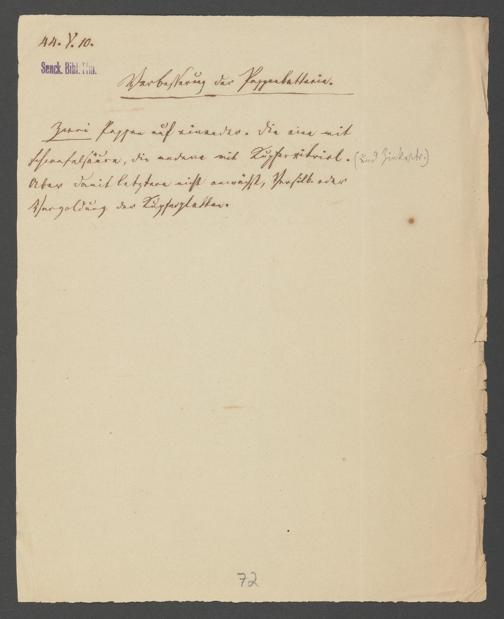 44. V. 10.
Senck. Bibl. Ffm.
Verbesserung der Pappenbatterie.
Zwei Pappen auf einander. Die eine mit
Schwefelsäure, die andere mit Kupfervitriol. (und Zinkvitr.)
Aber damit letztere nicht anwächst, Versilb oder
Vergoldung der Kupferplatten.
72